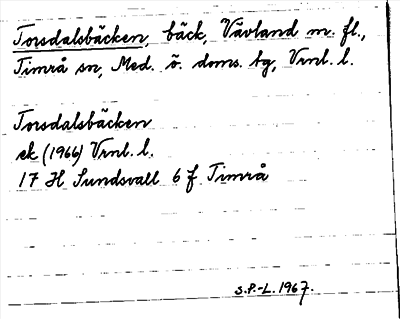 Torsdalsbäcken, bäck, Vävland m. fl.,
Timrå sn, Med. ö. doms. tg, Vrnl. l.
Torsdalsbäcken
ek (1966) Vrnl. l.
17 H Sundsvall 6 f Timrå
S.P.-L. 1967.